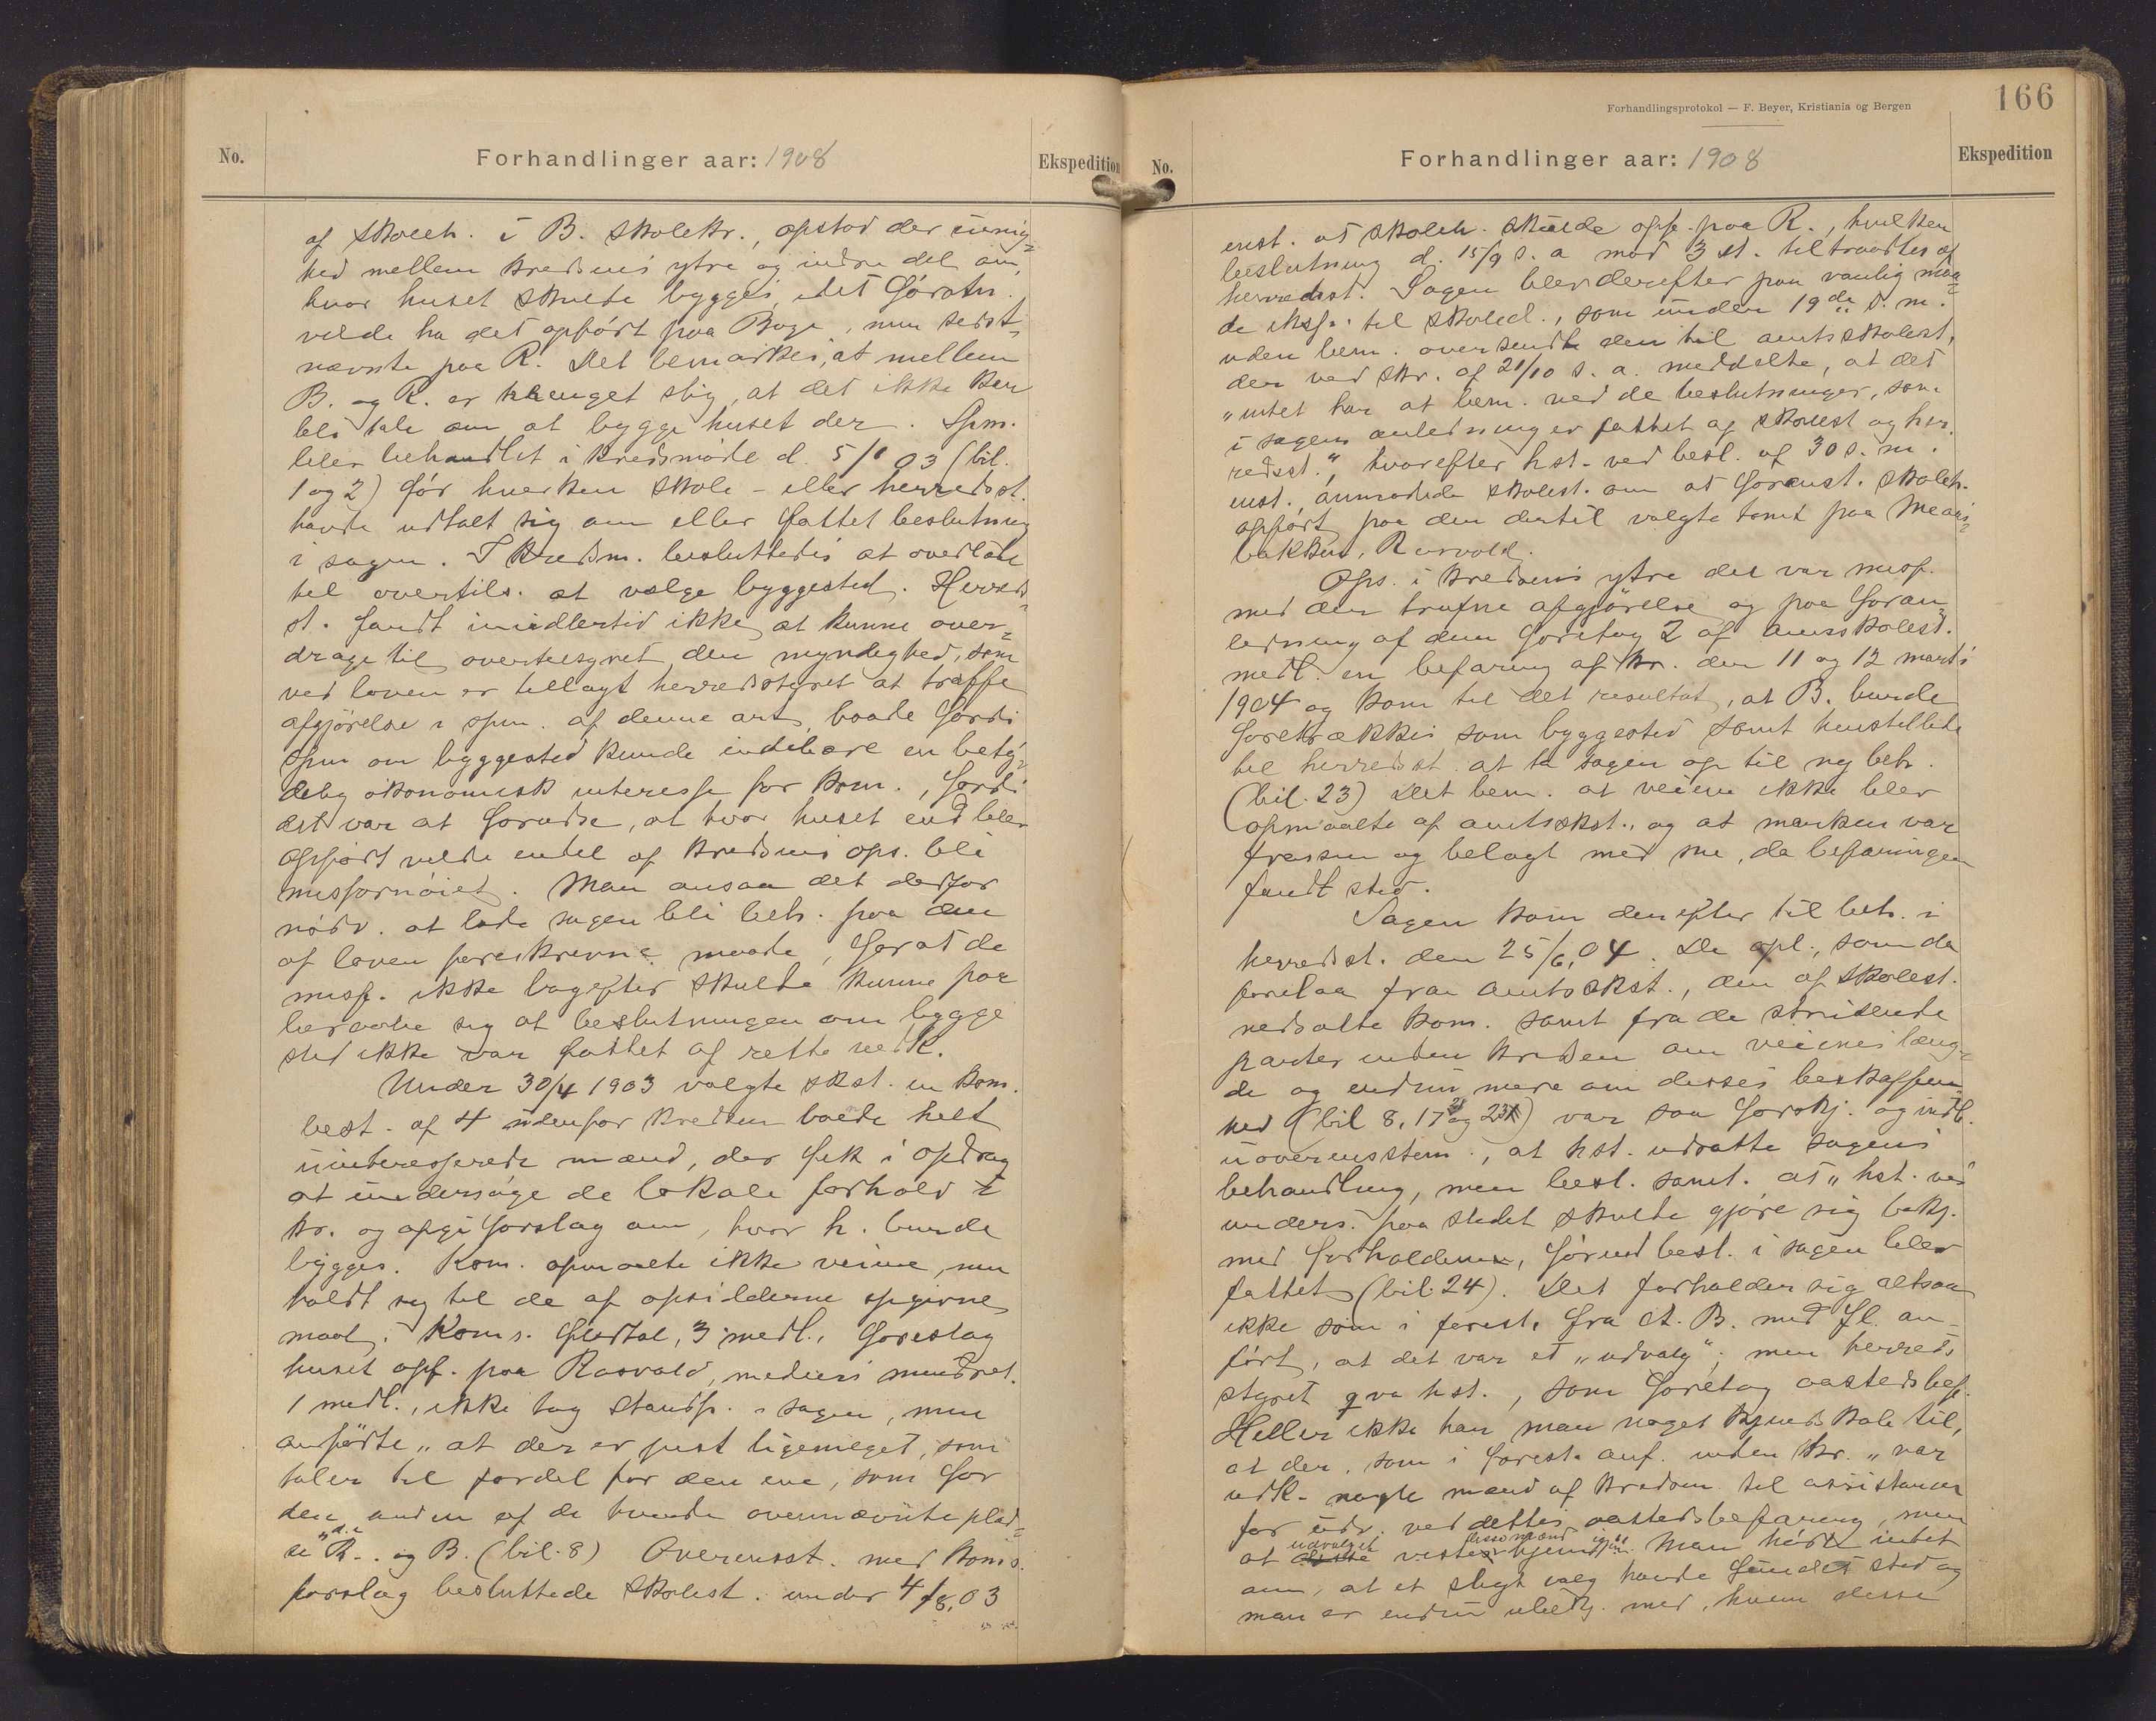 No.
Forhandlinger aar: 1908
Ekspedition
af skoleh. i B. skolekr., opstod der uenig-
hed mellem kredsens ytre og indre del om,
hvor huset skulde bygges, idet førstn.
vilde ha det opført paa Boge, men sidst-
nævnte paa R. Det bemærkes, at mellem
B. og R. er terrænget slig, at det ikke kan
bli tale om at bygge huset der. Spm.
blev behandlet i kredsmøde d. 5/1 03 (bil.
1 og 2) før hverken skole- eller herredsst.
havde udtalt sig om eller fattet beslutning
i sagen. I kredsm. besluttedes at overlate
til overtils. at vælge byggested. Herreds-
st. fandt imidlertid ikke at kunne over-
drage til overtilsynet den myndighed, som
ved loven er tillagt herredsstyret at træffe
afgjørelse i spm. af denne art, baade fordi
spm om byggested kunde indebære en bety-
delig økonomisk interesse for kom., fordi
det var at forudse, at hvor huset end blev
opført vilde endel af kredsens ops. bli
misfornøiet. Man ansaa det derfor
nødv. at lade sagen bli beh. paa den
af loven foreskrevne maade, forat de
misf. ikke bagefter skulde kunne paa
beraabe sig at beslutningen om bygge
sted ikke var fattet af rette vedk.
Under 30/4 1903 valgte skst. en kom.
best. af 4 udenfor kredsen boende helt
uinteresserede mænd, der fik i opdrag
at undersøge de lokale forhold i
kr. og afgi forslag om, hvor h. burde
bygges. Kom. opmaalte ikke veiene, men
holdt sig til de af opsidderne opgivne
maal. Koms. flertal, 3 medl., foreslog
huset opf. paa Rasvald, medens mindret.
1 medl., ikke tog standp. i sagen, men
anførte „at der er just ligemeget, som
taler til fordel for den ene, som for
den anden af de tvende ovennævnte plad-
se" d.e R. og B. (bil. 8) Overensst. med koms.
forslag besluttede skolest. under 4/8, 03
Forhandlingsprotokol — F. Beyer, Kristiania og Bergen
166
No.
Forhandlinger aar: 1908
Ekspedition
enst. at skoleh. skulde opf. paa R., hvilken
beslutning d. 15/9 s. a mod 3 st. tiltraadtes af
herredsst. Sagen blev derefter paa vanlig maa-
de eksp. til skoled., som under 19de s. m.
uden bem. oversendte den til amtsskolest,
der ved skr. af 21/10 s. a. meddelte, at det
„intet har at bem. ved de beslutninger, som
i sagens anledning er fattet af skolest og her-
redsst.", hvorefter hst. ved besl. af 30 s. m.
enst. anmodede skolest. om at faa enst. skoleh.
opført paa den dertil valgte tomt paa
bakken, Rasvald.
Ops. i kredsens ytre del var misf.
med den trufne afgjørelse og paa foran-
ledning af dem foretog 2 af amtsskolest.
medl. en befaring af kr. den 11 og 12 marts
1904 og kom til det resultat, at B. burde
foretrækkes som byggested samt henstillede
til herredsst. at ta sagen op til ny beh.
(bil. 23) Det bem. at veiene ikke blev
opmaalte af amtsskst., og at marken var
frossen og belagt med sne, da befaringen
fandt sted.
Sagen kom derefter til beh. i
herredsst. den 25/6, 04. De opl., som da
forelaa fra amtsskst., den af skolest.
nedsatte kom. samt fra de stridende
parter inden kredsen om veienes læng-
de og endnu mere om disses beskaffen-
hed (bil 8, 17 og 23) var saa forskj. og indb.
uoverensstem., at hst. udsatte sagens
behandling, men besl. samt. at „hst. ved
unders. paa stedet skulde gjøre sig bekj.
med forholdene, førend besl. i sagen blev
fattet (bil. 24). Det forholder sig altsaa
ikke som i forest. fra A. B. med fl. an-
ført, at det var et „udvalg"; men herreds
styret qva hst., som foretog aastedsbef.
Heller ikke har man noget kjendskab til,
at der, som i forest. anf. inden kr. „var
udk. nogle mænd af kredsen til assistance
for udv. ved dettes aastedsbefaring, men
at udvalget viste disse mænd hjem igjen". Man hørte intet
om, at et sligt valg havde fundet sted og
man er endnu ubekj. med, hvem disse